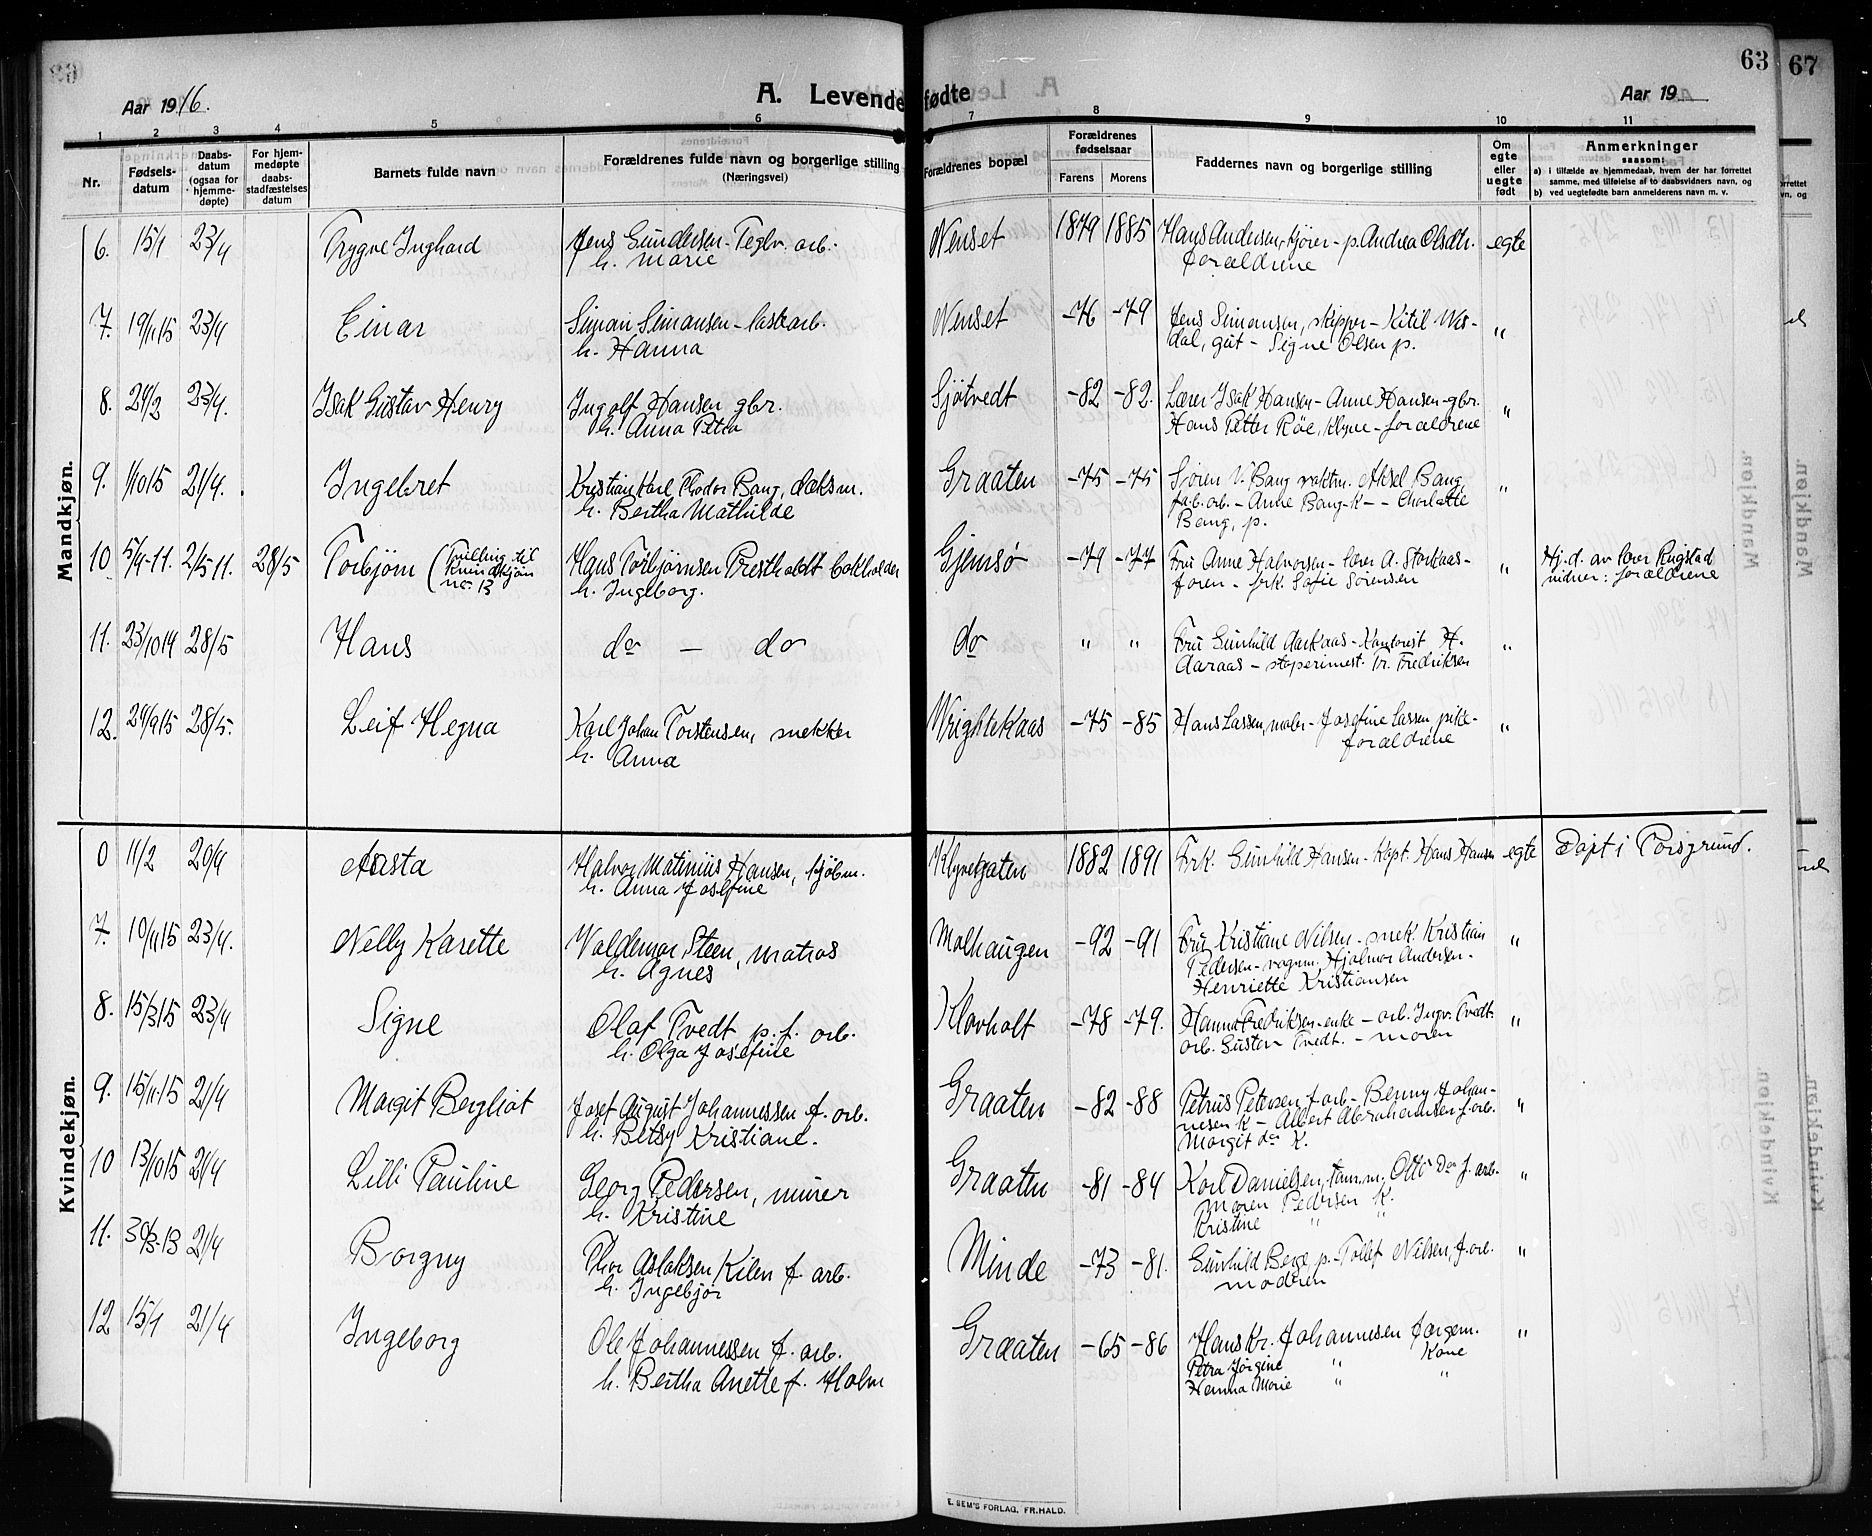 63
67
Aar 1916.
A. Levendefødte
Aar 19
1 2 3 4 5 6 7 8 9 10 11
Nr.
Fødsels-
datum
Daabs-
datum
(ogsaa for
hjemme-
døpte)
For hjem-
medøpte
daabs-
stadfæstelses
datum
Barnets fulde navn
Forældrenes fulde navn og borgerlige stilling
(Næringsvei)
Forældrenes bopæl
Forældrenes
fødselsaar
Farens Morens
Faddernes navn og borgerlige stilling
Om
egte
eller
uegte
født
Anmerkninger
saasom:
a) i tilfælde av hjemmedaab, hvem der har forrettet
samme, med tilføielse af to daabsvidners navn, og
b) ved uegtefødte barn anmelderens navn m. v.
Mandkjøn.
6. 15/1 23/4 Trygve Inghard Jens Gundersen - Teglv. arb. Nenset 1879 1885 Hans Andersen, kjører - p. Andrea Olsdtr. egte
h. Marie forældrene
7. 19/11 15 23/4 Einar Simon Simonsen - lastarb. Nenset -76 -79 Jens Simonsen, skipper - Kitil Nes-
h. Hanna dal, gut - Signe Olsen p. "
8. 24/2 23/4. Isak Gustav Henry Ingolf Hansen gbr. Sjøtvedt -82 -82. Lærer Isak Hansen - Anne Hansen - gbr.
h. Anna Petra Hans Petter Røe, Klyve - forældrene "
9. 1/10 15 21/4. Ingebret Kristian Karl Thodor Bang, dæksm. Graaten -75 -75 Søren V. Bang vaktm. Aksel Bang
h. Bertha Mathilde fab. arb. - Anne Bang - k - - Charlotte "
Bang, p.
10 5/4-11. 2/5-11. 28/5 Torbjørn (Tvilling til Hans Torbjørnsen Prestholdt bokholder Gjemsø -79 -77 Fru Anne Halvorsen - lærer A. Storkaas- " Hj.d. av lærer Ringstad
kvindekjøn h. Ingeborg. foren - frk. Sofie Sørensen vidner: forældrene
no. 13
11. 23/10 14 28/5 Hans do - do do " " Fru Gunhild Aarkaas - Kontorist H. "
Aaraas - Tr. Fredriksen
12. 24/9 15 28/5. Leif Hegna Karl Johan Torstensen, snekker Wrighteklaas -75 -85 Hans Lassen, maler - Josefine Lassen, pike - "
h. Anna forældrene
Kvindekjøn.
0 11/2 20/4 Aasta Halvor Matinius Hansen, kjøbm. Klyvegaten 1882 1891 Frk. Gunhild Hansen - Kapt. Hans Hansen egte Døpt i Porsgrund.
h. Anna Josefine
7. 10/11 15 23/4. Nelly Karette Valdemar Steen, matros Molhaugen -92 -91 Fru Kristiane Nilsen - snek. Kristian "
h. Agnes Pedersen - vognm. Hjalmar Andersen -
Henriette Kristiansen
8. 15/3 15 23/4 Signe Olaf Tvedt p. f. arb. Klovholt -78 -79. Hanna Fredriksen - enke - arb. Ingv. Tvedt. "
h. Olga Josefine arb. Gustav Tvedt. - moren
9. 15/11-15 21/4 Margit Bergliot Josef August Johannessen f. arb. Graaten -82 -88 Petrus Petersen f. arb - Benny Johan- "
h. Betsy Kristiane. nesen k - Albert Abrahamsen f. arb.
Margit do k.
10 13/10 15 21/4 Lilli Pauline Georg Pedersen, murer Graaten -81 -84 Karl Danielsen, tømm. Otto do f. arb. "
h. Kristine Maren Pedersen k.
Kristine " "
11. 30/3-13 21/4 Borgny Thor Aslaksen Kilen f. arb. Minde -73 -81. Gunhild Berge p. - Tollef Nilsen, f. arb. "
h. Ingebjør moderen
12 15/1 21/4 Ingeborg Ole Johannessen f. arb. Graaten -65 -86 Hans Kr. Johannesen forgem. "
h. Bertha Anette f. Holm Petra Jørgine " Kone
Hanna Marie " "
E. SEM'S FORLAG, FR.HALD.